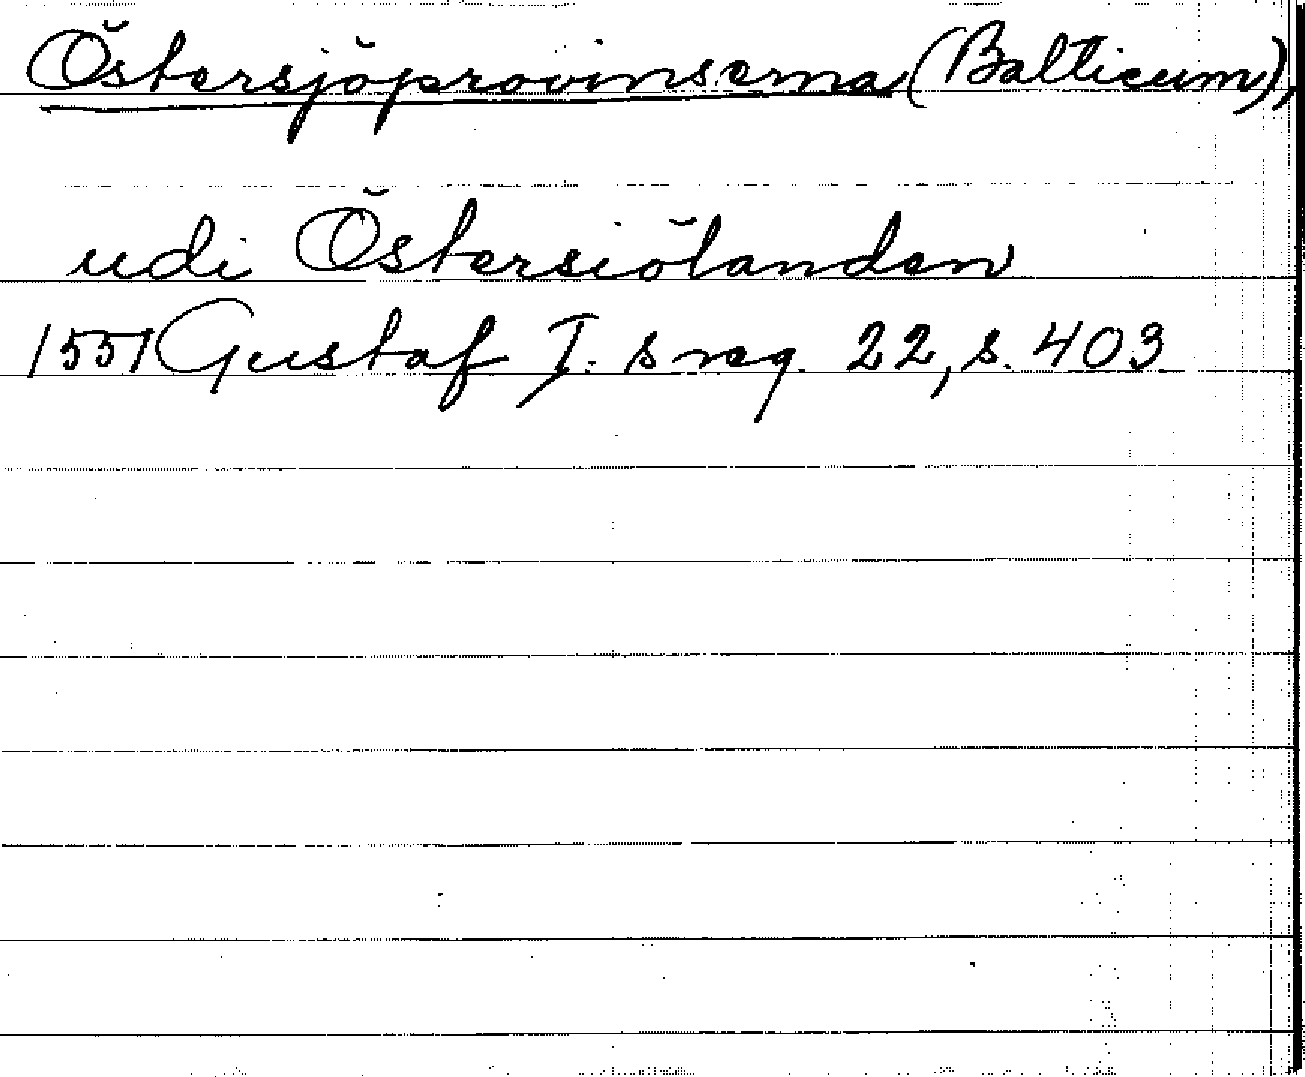 Östersjöprovinserna (Balticum),
udi Östersiölanden
1551 Gustaf I:s reg. 22, s. 403